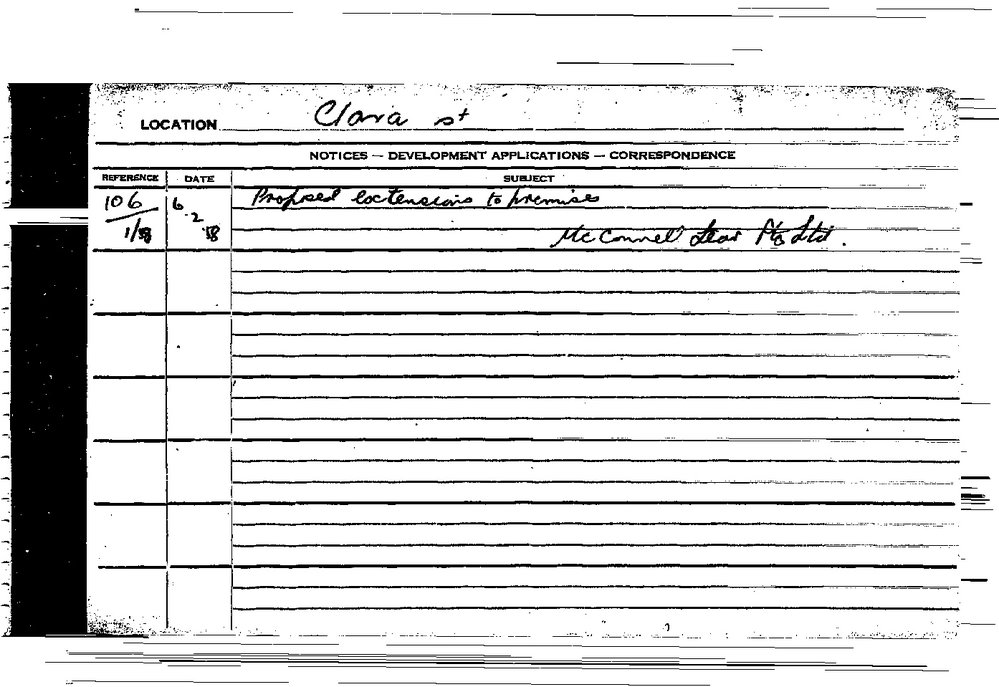 LOCATION Clara st
NOTICES — DEVELOPMENT APPLICATIONS — CORRESPONDENCE
REFERENCE DATE SUBJECT
106 6 Proposed extensions to premises
2
McConnel Pty Ltd.